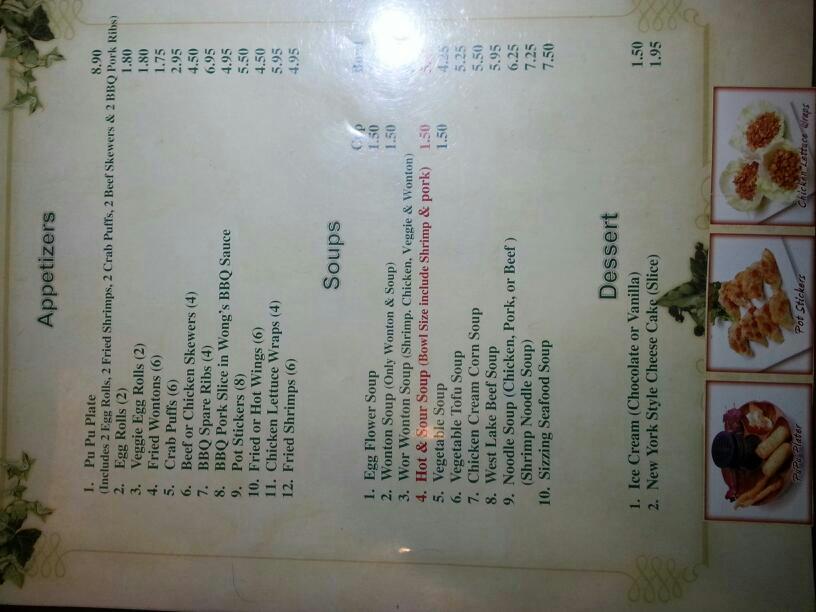 Appetizers
1. Pu Pu Plate 8.90
(Includes 2 Egg Rolls, 2 Fried Shrimps, 2 Crab Puffs, 2 Beef Skewers & 2 BBQ Pork Ribs)
2. Egg Rolls (2) 1.80
3. Veggie Egg Rolls (2) 1.80
4. Fried Wontons (6) 1.75
5. Crab Puffs (6) 2.95
6. Beef or Chicken Skewers (4) 4.50
7. BBQ Spare Ribs (4) 6.95
8. BBQ Pork Slice in Wong's BBQ Sauce 4.95
9. Pot Stickers (8) 5.50
10. Fried or Hot Wings (6) 4.50
11. Chicken Lettuce Wraps (4) 5.95
12. Fried Shrimps (6) 4.95
Soups
Cup Bowl
1. Egg Flower Soup 1.50
2. Wonton Soup (Only Wonton & Soup) 1.50
3. Wor Wonton Soup (Shrimp, Chicken, Veggie & Wonton)
4. Hot & Sour Soup (Bowl Size include Shrimp & pork) 1.50
5. Vegetable Soup 1.50 4.25
6. Vegetable Tofu Soup 5.25
7. Chicken Cream Corn Soup 5.50
8. West Lake Beef Soup 5.95
9. Noodle Soup (Chicken, Pork, or Beef ) 6.25
(Shrimp Noodle Soup) 7.25
10. Sizzing Seafood Soup 7.50
Dessert
1. Ice Cream (Chocolate or Vanilla) 1.50
2. New York Style Cheese Cake (Slice) 1.95
PuPu Plater
Pot Stickers
Chicken Lettuce Wraps